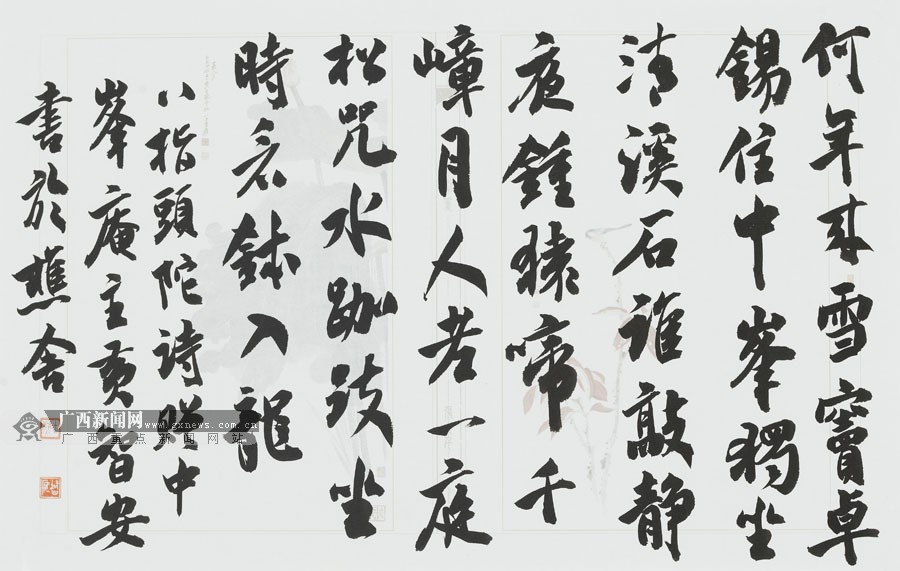 何年来雪竇卓
錫住中峯獨坐
清溪石誰敲静
夜鍾猿啼千
嶂月人老一庭
松咒水跏趺坐
時看鉢入龍
八指頭陀詩贈中
峯庵主黄智安
書於樵舍
广西新闻网 www.gxnews.com.cn
广西重点新闻网站